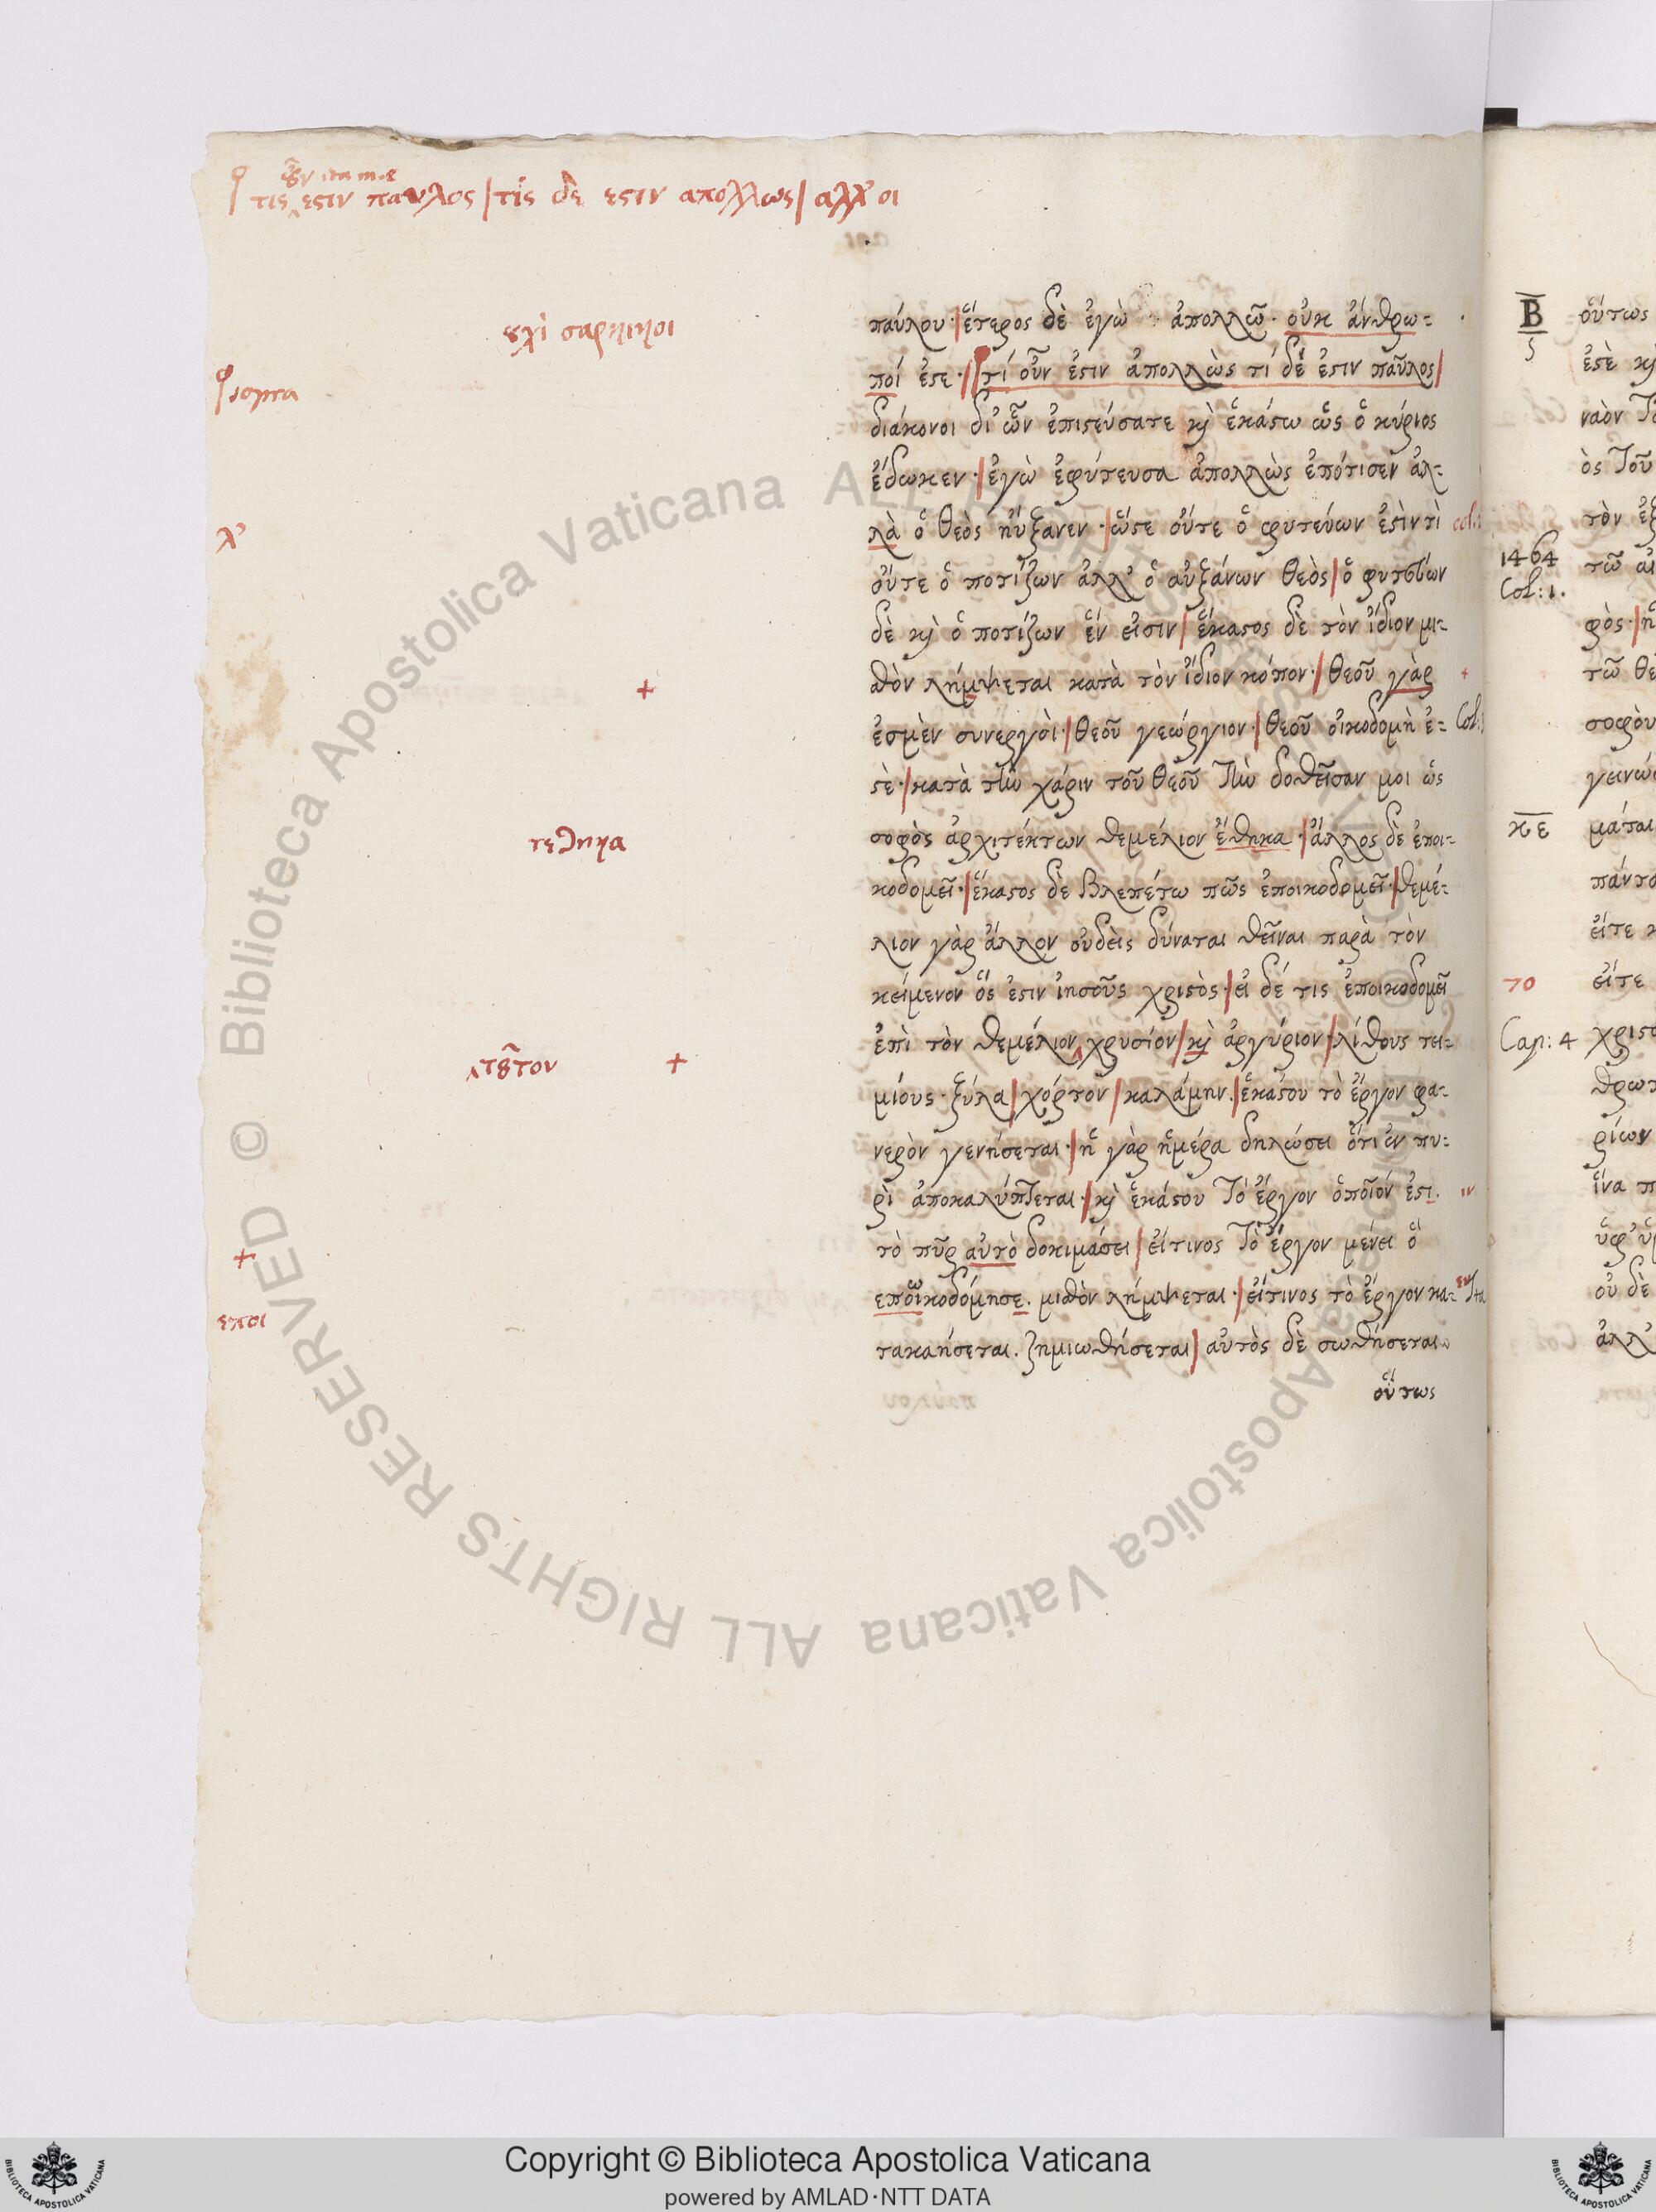 ȣν ita m.e
τις εστιν παυλος / τίς δε εστιν απολλως / αλλ' οι
παύλου · / ἕτερος δὲ ἐγὼ ἀπολλῶ · οὐκ ἄνθρω-
ȣχὶ σαρκικοι
ποί ἐστε · / τί οὖν ἐστιν ἀπολλὼς τί δέ ἐστιν παῦλος /
sopra
διάκονοι δι ὧν ἐπιστεύσατε κ ἑκάστω ὡς ὁ κύριος
ἔδωκεν · / ἐγὼ ἐφύτευσα ἀπολλὼς ἐπότισεν ἀλ-
λὰ ὁ θεὸς ηὔξανεν · / ὥστε οὔτε ὁ φυτεύων ἐστὶν τὶ
λ' col:
οὔτε ὁ ποτίζων ἀλλ' ὁ αὐξάνων θεὸς / ὁ φυτεύων
δὲ κ ὁ ποτίζων ἕν εἰσιν / ἕκαστος δὲ τὸν ἴδιον μι-
σθὸν λήμψεται κατὰ τὸν ἴδιον κόπον · / θεοῦ γὰρ
+ +
ἐσμὲν συνεργοὶ · / θεοῦ γεώργιον · / θεοῦ οἰκοδομὴ ἐ-
Col:
στὲ · / κατὰ τὴν χάριν τοῦ θεοῦ τὴν δοθεῖσαν μοι ὡς
σοφὸς ἀρχιτέκτων θεμέλιον ἔθηκα · / ἄλλος δὲ ἐποι-
τεθηκα
κοδομεῖ · / ἕκαστος δὲ βλεπέτω πῶς ἐποικοδομεῖ · / θεμέ-
λιον γὰρ ἄλλον οὐδεὶς δύναται θεῖναι παρὰ τὸν
κείμενον ὅς ἐστιν ἰησοῦς χριστὸς · / εἰ δέ τις ἐποικοδομεῖ
ἐπὶ τὸν θεμέλιον χρυσίον / κ ἀργύριον · / λίθους τει-
τȣτον +
μίους · ξύλα / χόρτον / καλάμην · / ἑκάστου τὸ ἔργον φα-
νερὸν γενήσεται · / ἡ γὰρ ἡμέρα δηλώσει ὅτι ἐν πυ-
ρὶ ἀποκαλύπτεται · / κ ἑκάστου τὸ ἔργον ὁποῖόν ἐστι .
ιν
τὸ πῦρ αὐτὸ δοκιμάσει / εἴτινος τὸ ἔργον μένει ὅ
+
εποικοδόμησε . μισθὸν λήμψεται · / εἴτινος τὸ ἔργον κα-
εποι
τακαήσεται . ζημιωθήσεται / αὐτὸς δὲ σωθήσεται
οὕτως
B
οὕτως
ἐστὲ κ
ναὸν
ὸς τοῦ
τὸν
1464
Col: 1.
φὸς · /
τῶ
σοφὸν
κε
μάται
εἴτε
εἴτε
70
Cap: 4
ρίων
ἵνα π
οὐ δὲ
ἀλλ'
Copyright © Biblioteca Apostolica Vaticana
powered by AMLAD·NTT DATA
© Biblioteca Apostolica Vaticana ALL RIGHTS RESERVED